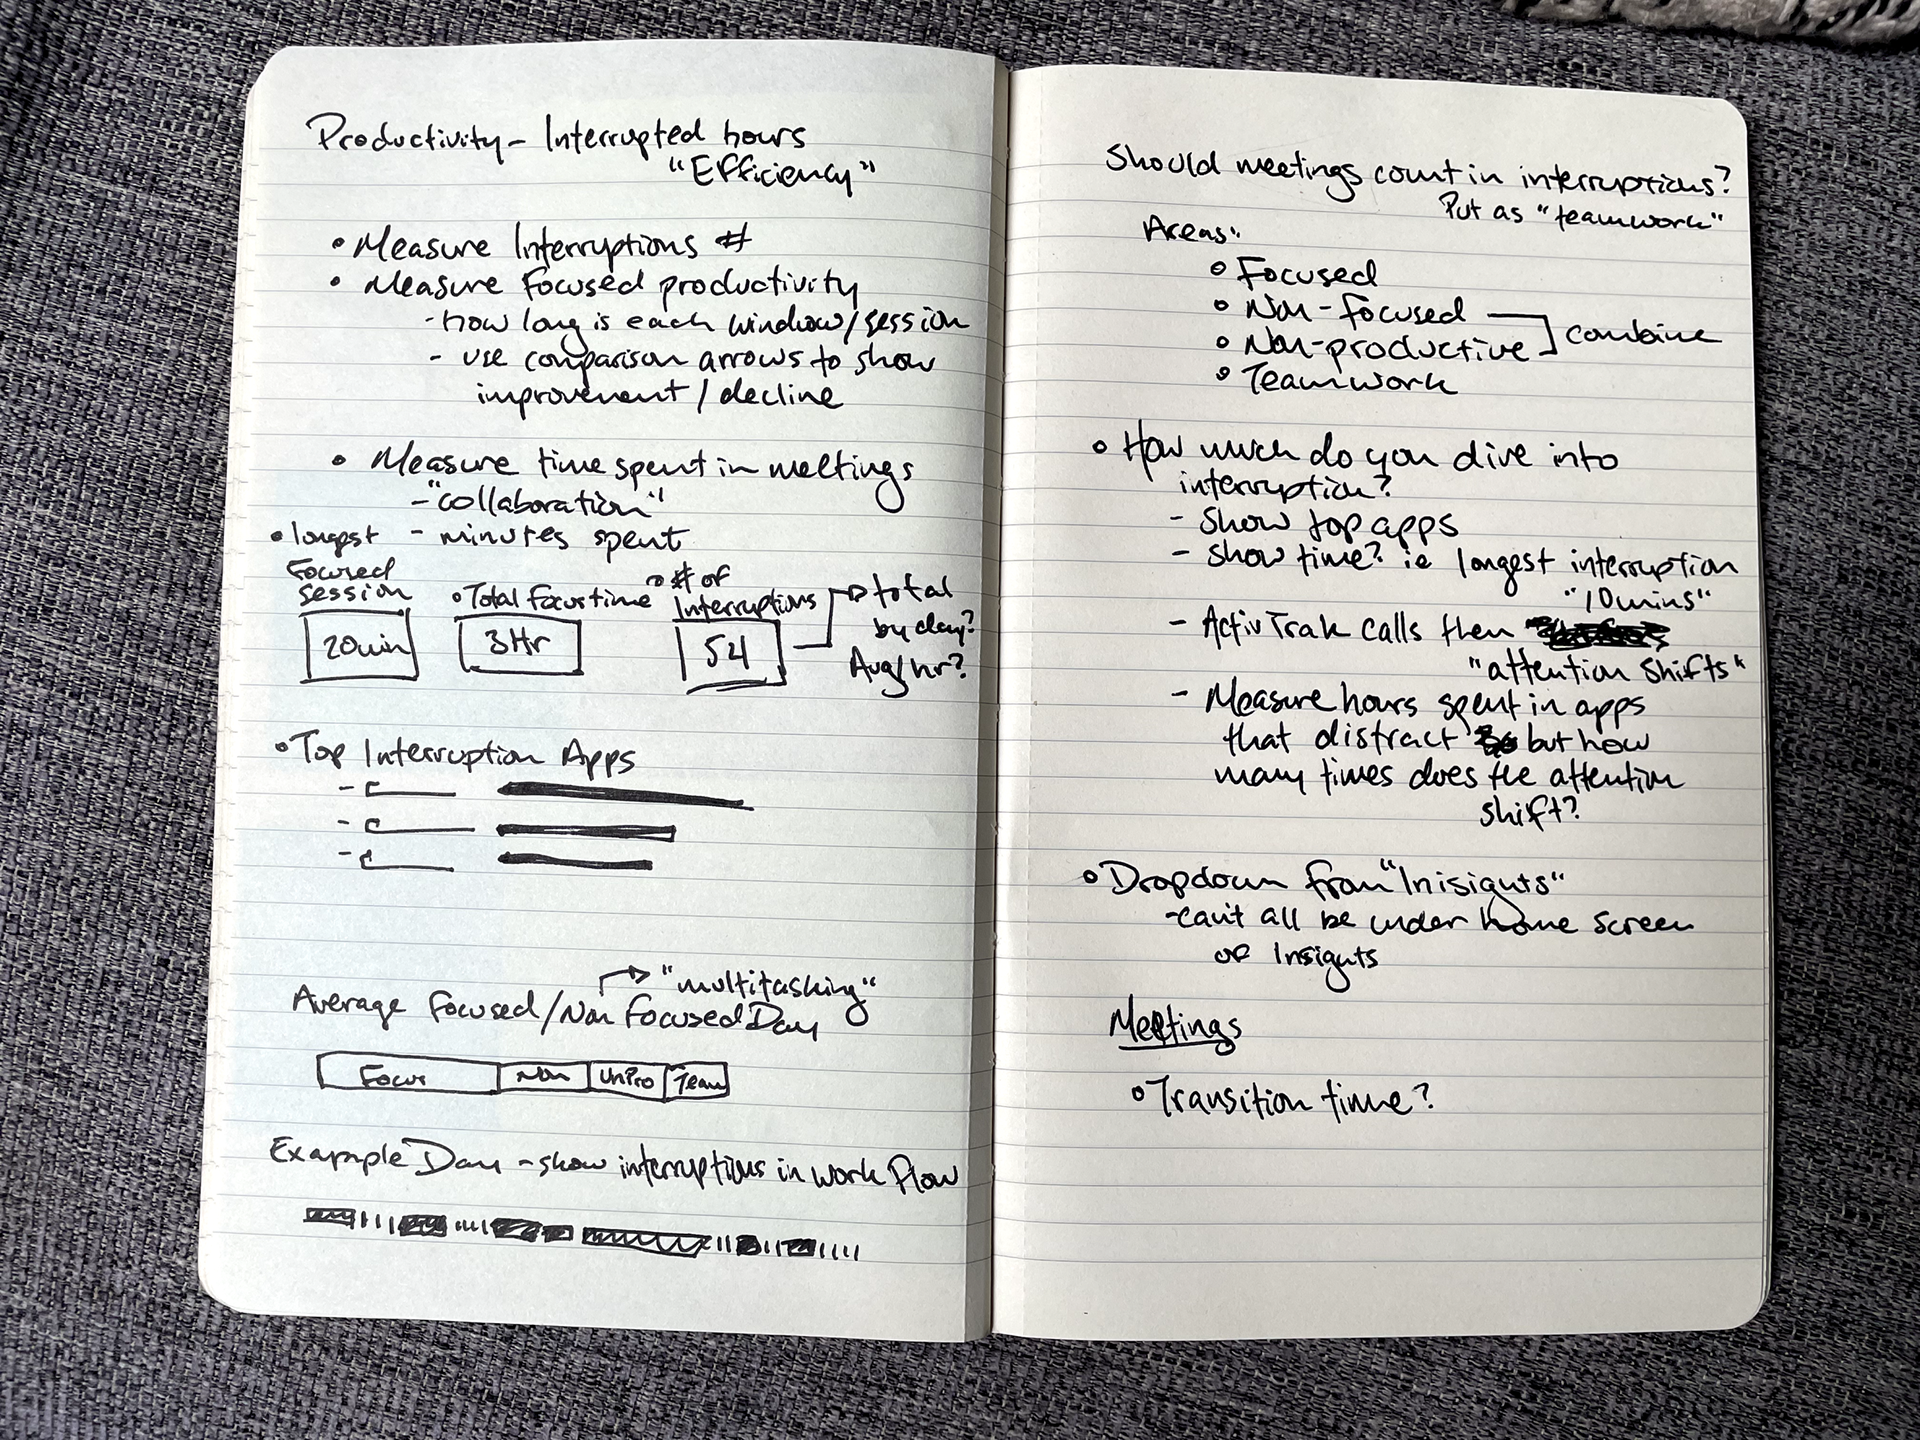 Productivity - Interrupted hours
"Efficiency"
• Measure Interruptions #
• Measure Focused productivity
- how long is each window/session
- use comparison arrows to show
improvement / decline
• Measure time spent in meetings
- "collaboration"
- minutes spent
• longest
Focused
session
20min
• Total focus time
3Hr
• # of
Interruptions
54
→ total
by day?
Avg/hr?
• Top Interruption Apps
→ "multitasking"
Average Focused/Non Focused Day
Focus Non UnPro Team
Example Day - show interruptions in work flow
Should meetings count in interruptions?
Put as "teamwork"
Areas:
• Focused
• Non-focused
• Non-productive
combine
• Teamwork
• How much do you dive into
interruption?
- Show top apps
- Show time? ie longest interruption
"10mins"
- ActivTrak calls them
"attention shifts"
- Measure hours spent in apps
that distract but how
many times does the attention
shift?
• Dropdown from "Inisights"
- can't all be under home screen
of Insights
Meetings
• Transition time?